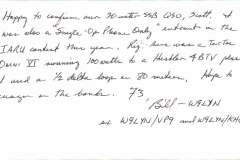 Happy to confirm our 20 meter SSB QSO, Scott. I
was also a "Single-Op Phone Only" entrant in the
IARU contest this year. Rig here was a Ten-Tec
Omni VI running 100 watts to a Hustler 4BTV plus
I used a 1/2 delta loop on 80 meters. Hope to
on the bands. 73
Bill - W9LYN
ex W9LYN/VP9 and W9LYN/KH6